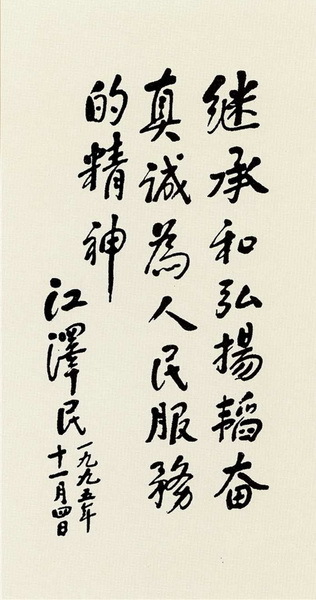 继承和弘揚韬奋
真誠為人民服務
的精神
江澤民
一九九五年
十一月四日